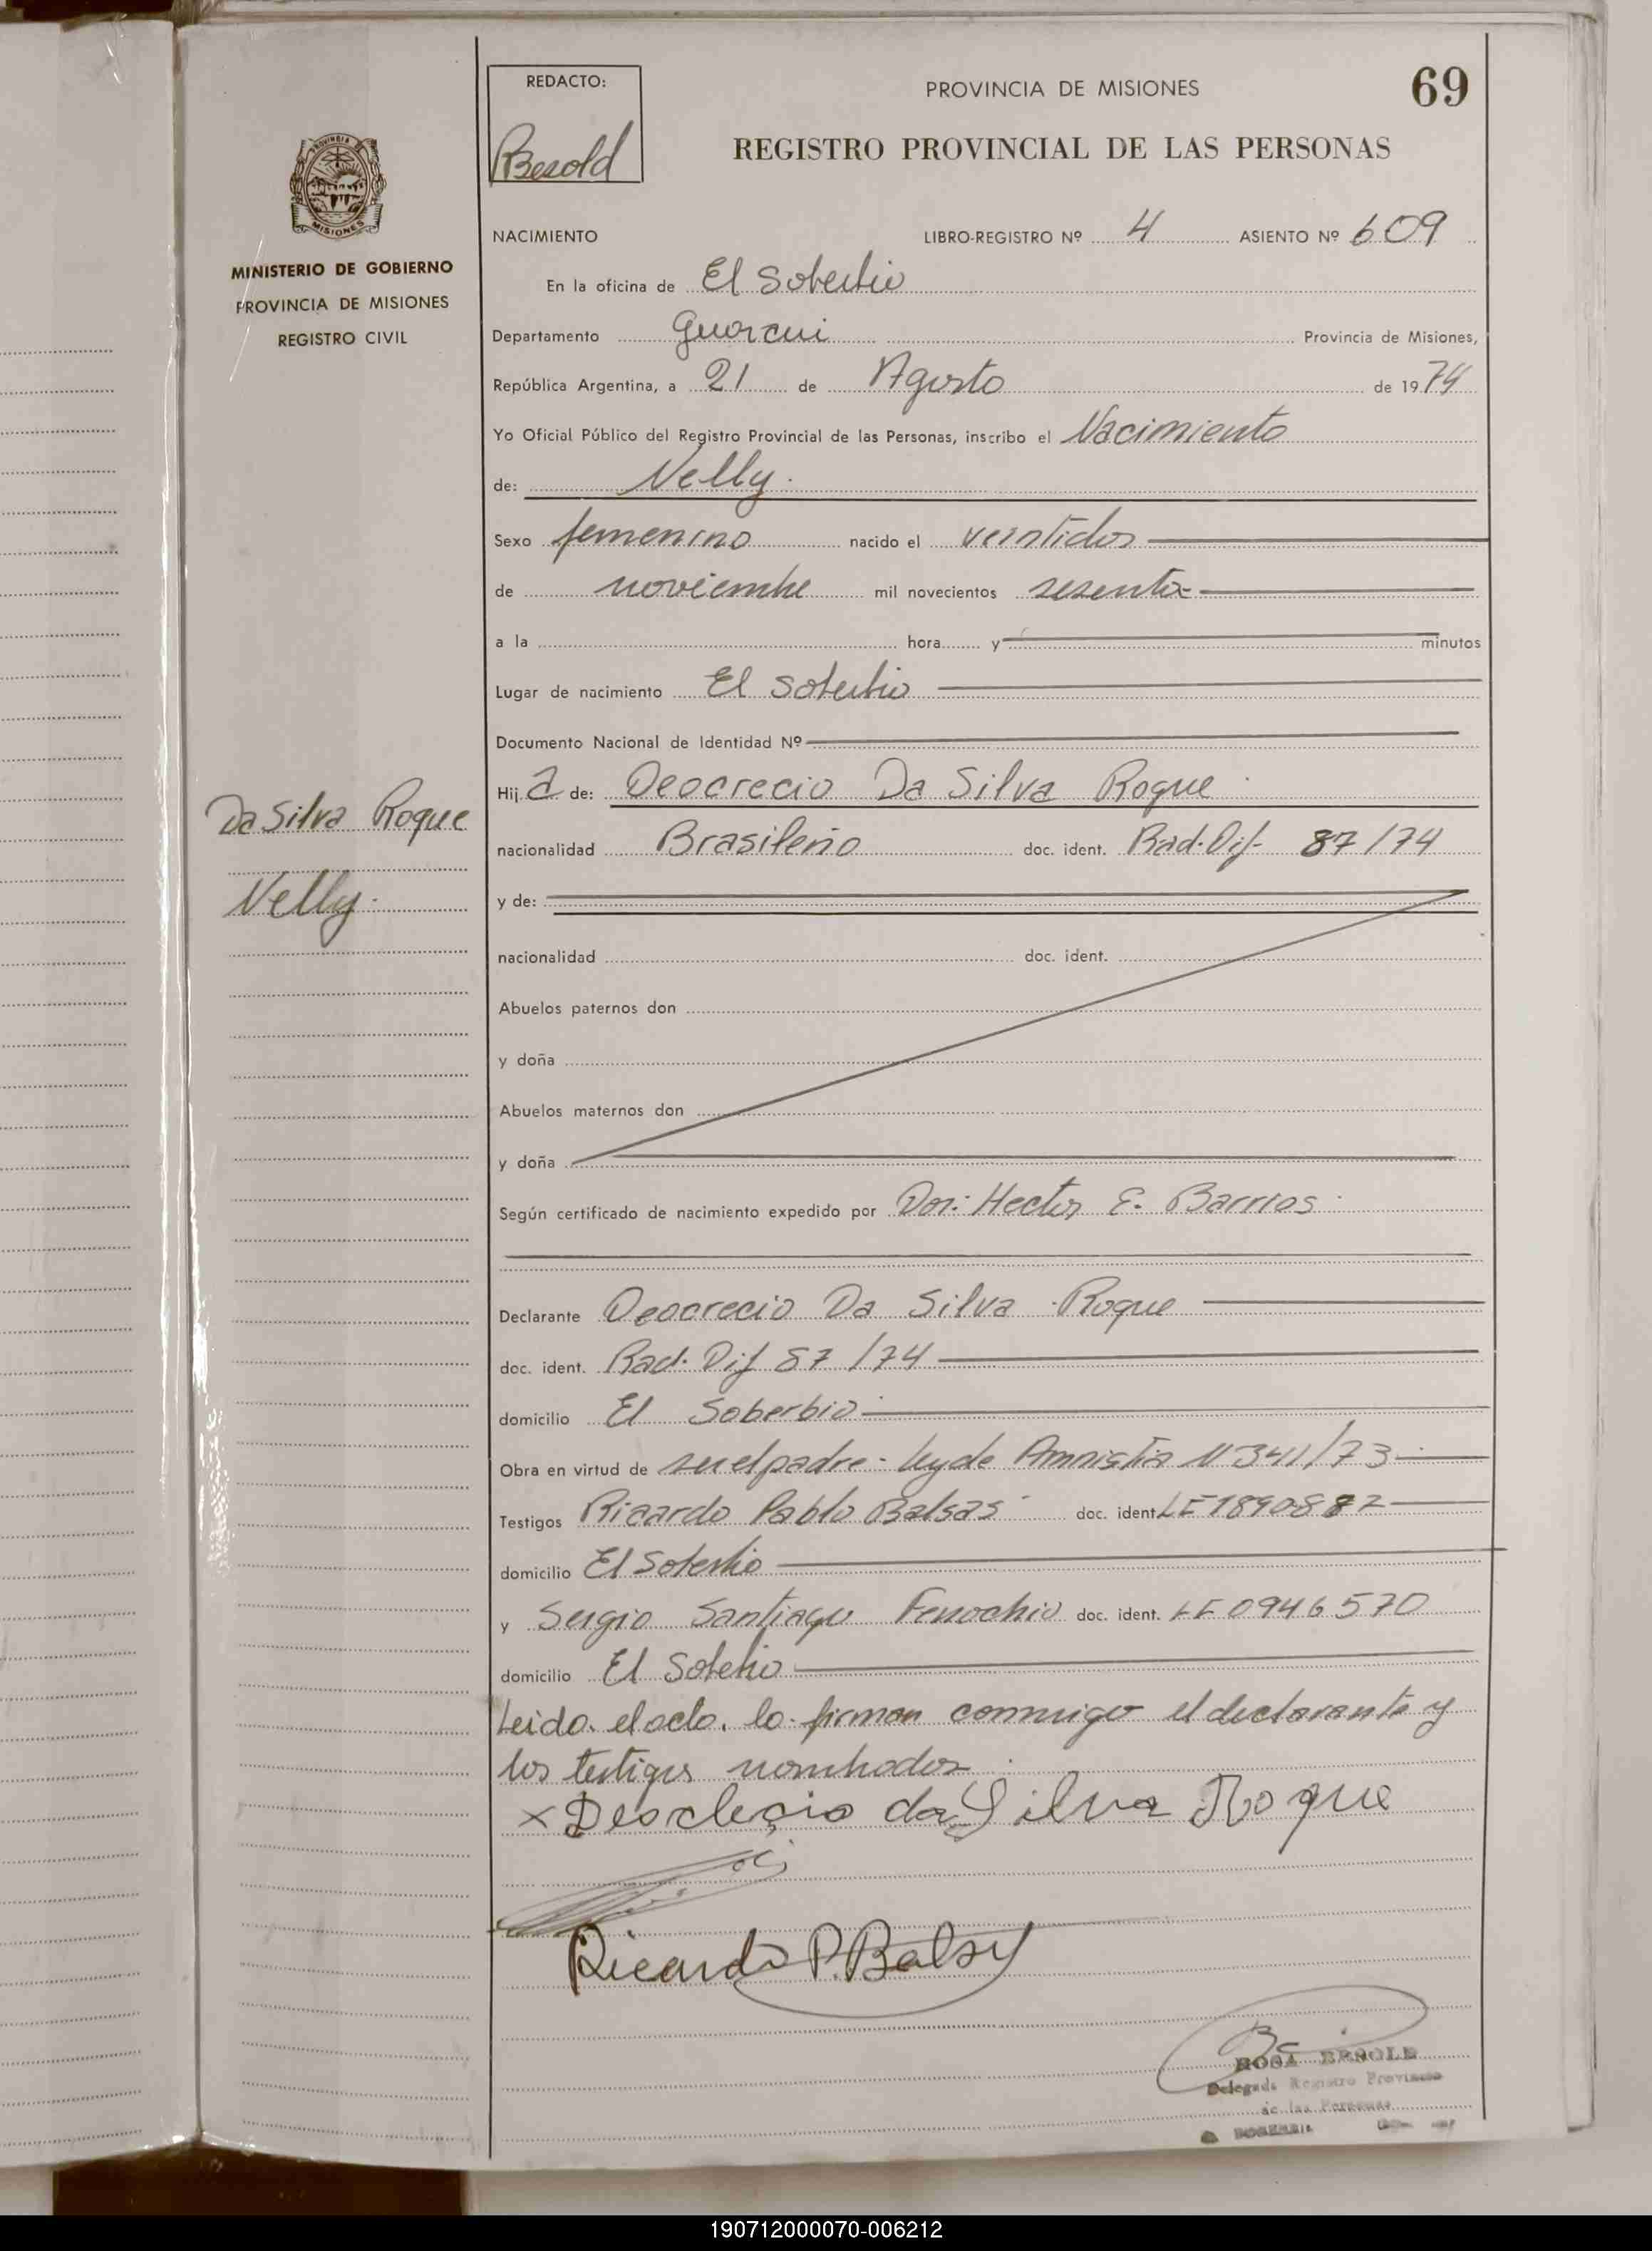 69
REDACTO:
Besold
PROVINCIA DE MISIONES
REGISTRO PROVINCIAL DE LAS PERSONAS
PROVINCIA DE
MISIONES
MINISTERIO DE GOBIERNO
PROVINCIA DE MISIONES
REGISTRO CIVIL
NACIMIENTO LIBRO-REGISTRO Nº 4 ASIENTO Nº 609
En la oficina de El Soberbio
Departamento Guarani Provincia de Misiones,
República Argentina, a 21 de Agosto de 1974
Yo Oficial Público del Registro Provincial de las Personas, inscribo el Nacimiento
de: Nelly.
Sexo femenino nacido el veintidos
de noviembre mil novecientos sesenta
a la hora y minutos
Lugar de nacimiento El Soberbio
Documento Nacional de Identidad Nº
Hij a de: Deocrecio Da Silva Roque
Da Silva Roque
nacionalidad Brasileño doc. ident. Rad. Dif- 87/74
Nelly.
y de:
nacionalidad doc. ident.
Abuelos paternos don
y doña
Abuelos maternos don
y doña
Según certificado de nacimiento expedido por Dor: Hector E. Barrios
Declarante Deocrecio Da Silva Roque
doc. ident. Rad. Dif 87/74
domicilio El Soberbio
Obra en virtud de ser el padre - ley de Amnistia N 341/73
Testigos Ricardo Pablo Balsas doc. ident. LE 1890887
domicilio El Soberbio
y Sergio Santiago Fenochio doc. ident. LE 0946570
domicilio El Soberbio
Leida el acta, lo firman conmigo el declarante y
los testigos nombrados
x Deoclecio da Silva Roque
Ricardo P. Balsy
ROSA BESOLD
Delegada Registro Provincial
de las Personas
190712000070-006212